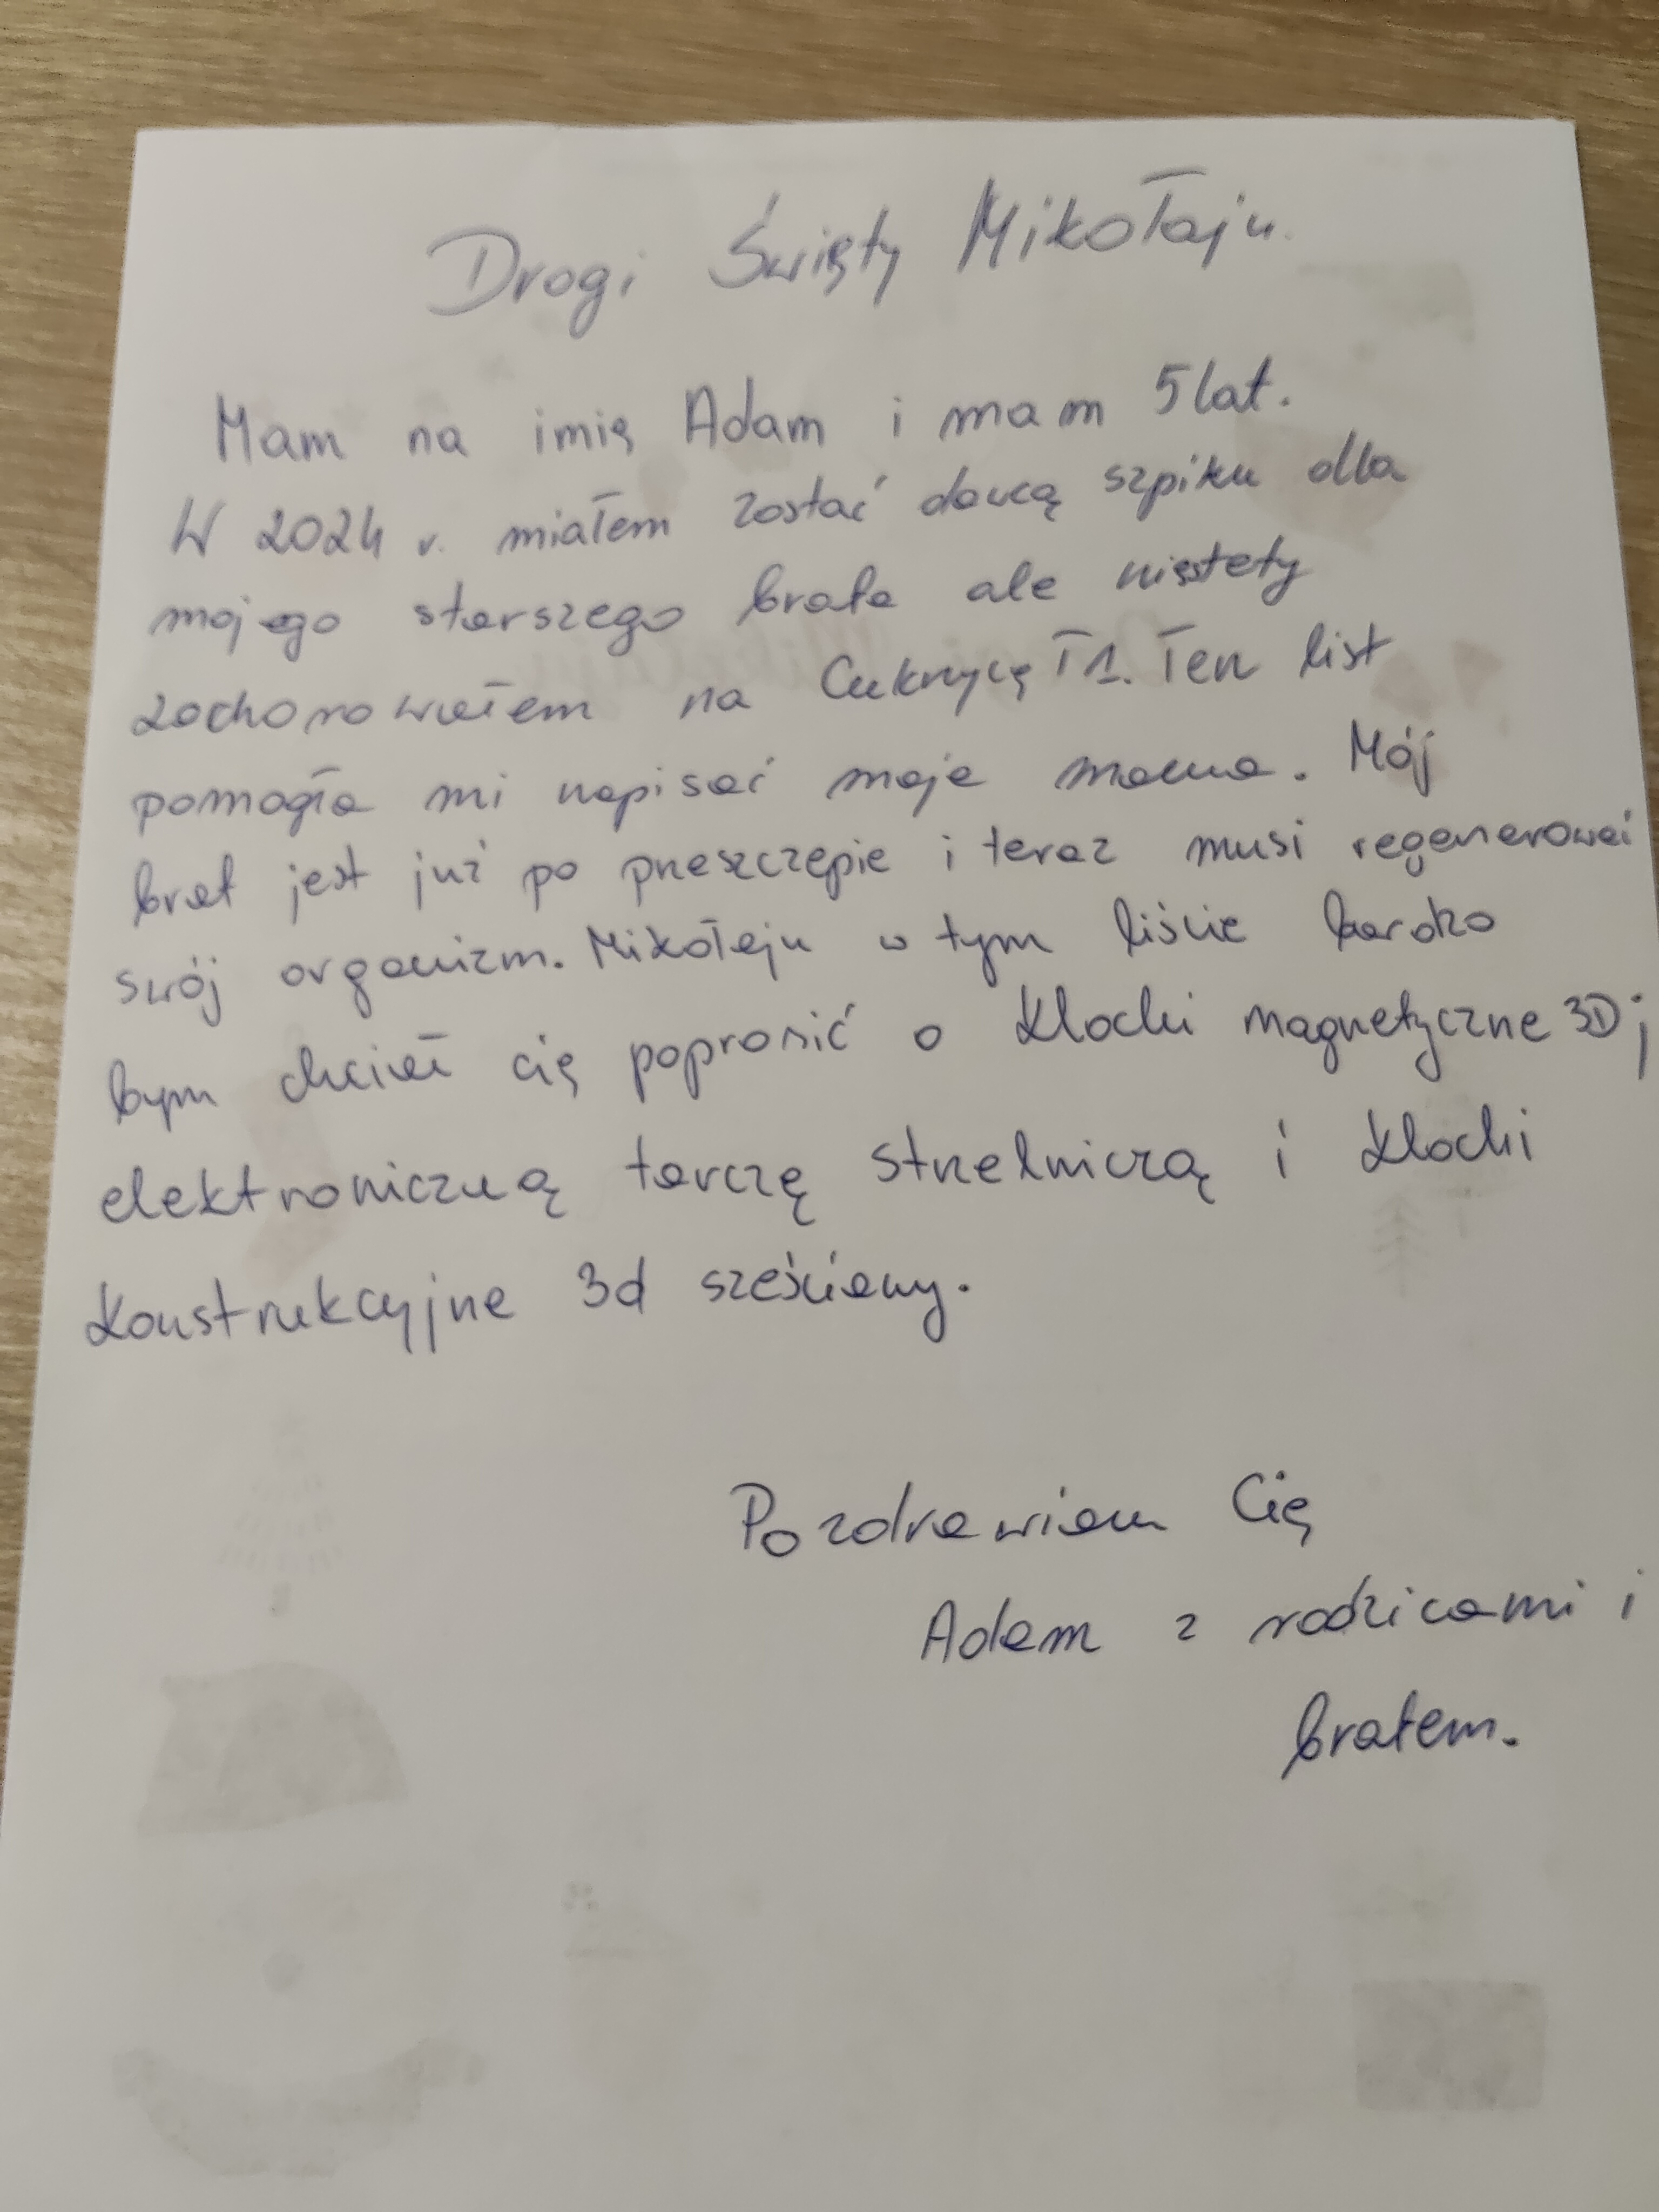 Drogi Święty Mikołaju.
Mam na imię Adam i mam 5 lat.
W 2024 r. miałem zostać dawcą szpiku dla
mojego starszego brata ale niestety
zachorowałem na Cukrzycę T1. Ten list
pomogła mi napisać moja mama. Mój
brat jest już po przeszczepie i teraz musi regenerować
swój organizm. Mikołaju w tym liście bardzo
bym chciał cię poprosić o klocki magnetyczne 3D;
elektroniczną tarczę strzelniczą i klocki
konstrukcyjne 3d sześciany.
Pozdrawiam Cię
Adam z rodzicami i
bratem.